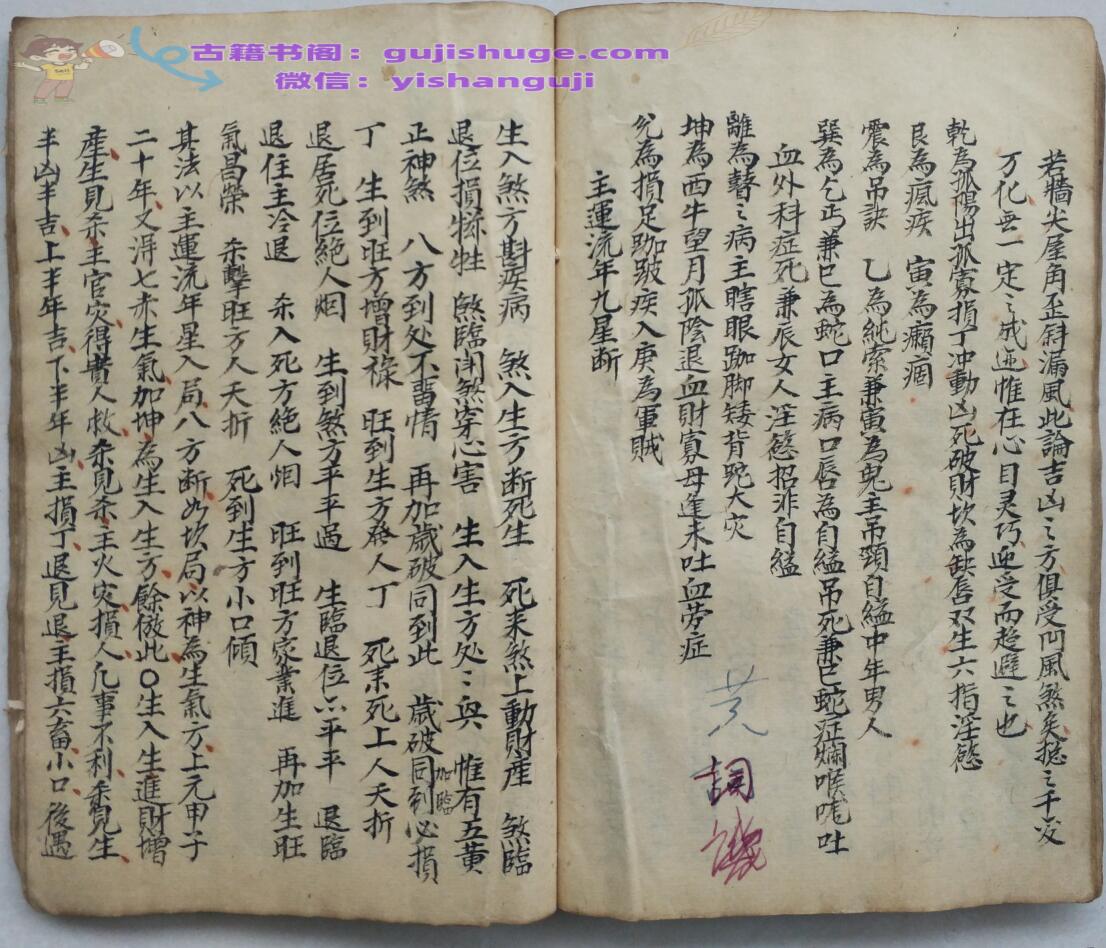 古籍书阁：gujishuge.com
微信：yishanguji
若墙尖屋角歪斜漏風此論吉凶之方俱受凹風煞矣揔之千变
万化無一定之成迹惟在心目灵巧迎受而趋避之也
乾為孤陽出孤寡損丁冲動凶死破財坎為缺唇双生六指淫慾
艮為瘋疾 寅為癲痼
震為吊訣 乙為純索兼寅為鬼主吊頸自縊中年男人
巽為乞丐兼巳為蛇口主病口唇為自縊吊死兼巳蛇症爛喉咙吐
血外科症死兼辰女人淫慾招非自縊
離為瞽之病主瞎眼跏脚矮背跎大灾
坤為西牛望月孤陰退血財寡母進未吐血劳症
兊為損足跏跛疾入庚為軍賊
主運流年九星断
詞譏
生入煞方斟疾病 煞入生方断死生 死来煞上動財産 煞臨
退位損牺牲 煞臨闭煞穿心害 生入生方处之興 惟有五黄
正神煞 八方到处不畱情 再加歲破同到此 歲破同到必損
加臨
丁 生到旺方增財禄 旺到生方發人丁 死未死上人夭折
退居死位絕人烟 生到煞方平平過 生臨退位亦平平 退臨
退住主冷退 杀入死方絕人烟 旺到旺方家業進 再加生旺
氣昌榮 杀擊旺方人夭折 死到生方小口傾
其法以主運流年星入局八方断如坎局以神為生氣方上元甲子
二十年又淂七赤生氣加坤為生入生方餘倣此〇生入生進財增
産生見杀主官灾得貴人救杀見杀主火灾損人凡事不利杀見生
半凶半吉上半年吉下半年凶主損丁退見退主損六畜小口後遇